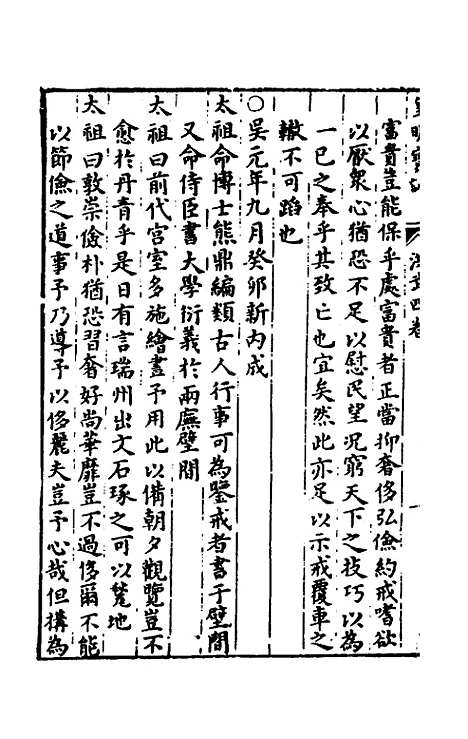 皇明寶訓 洪武四卷
富貴豈能保乎處富貴者正當抑奢侈弘儉約戒嗜欲
以厭衆心猶恐不足以慰民望況窮天下之技巧以為
一已之奉乎其致亡也宜矣然此亦足以示戒覆車之
轍不可蹈也
○吳元年九月癸卯新內成
太祖命博士熊鼎編類古人行事可為鑒戒者書于壁間
又命侍臣書大學衍義於兩廡壁間
太祖曰前代宮室多施繪畫予用此以備朝夕觀覽豈不
愈於丹青乎是日有言瑞州出文石琢之可以甃地
太祖曰敦崇儉朴猶恐習奢好尚華靡豈不過侈爾不能
以節儉之道事予乃導予以侈麗夫豈予心哉但搆為